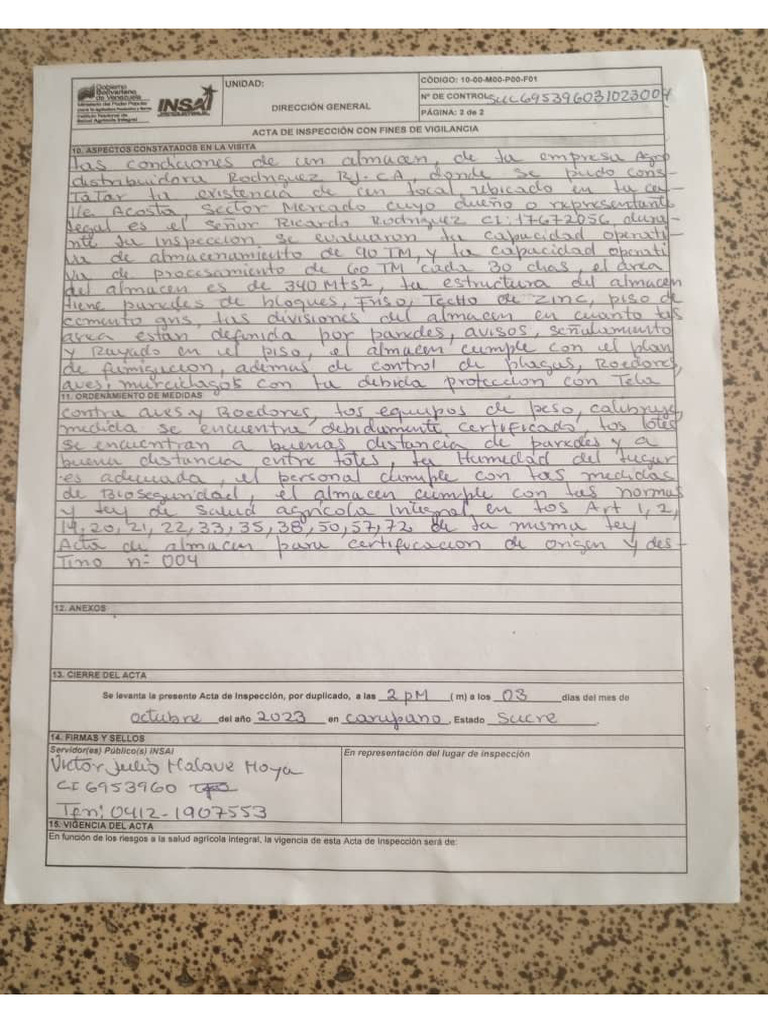 Gobierno Bolivariano de Venezuela
Ministerio del Poder Popular para la Agricultura Productiva y Tierras
Instituto Nacional de Salud Agrícola Integral
INSAI
UNIDAD:
DIRECCIÓN GENERAL
CÓDIGO: 10-00-M00-P00-F01
Nº DE CONTROL: SUC695396031023004
PÁGINA: 2 de 2
ACTA DE INSPECCIÓN CON FINES DE VIGILANCIA
10. ASPECTOS CONSTATADOS EN LA VISITA
las condiciones de un almacen, de la empresa Agro
distribuidora Rodriguez RJ. C.A, donde se pudo cons-
tatar la existencia de un local, ubicado en la ca-
lle Acosta Sector Mercado cuyo dueño o representante
legal es el señor Ricardo Rodriguez CI: 17672056, dura-
nte la inspeccion se evaluaron la capacidad operati
va de almacenamiento de 90 TM, y la capacidad operati
va de procesamiento de 60 TM cada 30 dias, el área
del almacen es de 340 Mts2, la estructura del almacen
tiene paredes de bloques, Friso, Techo de zinc, piso de
cemento gris, las divisiones del almacen en cuanto las
area estan definida por paredes, avisos, señalamiento
y Rayado en el piso, el almacen cumple con el plan
de fumigacion, ademas de control de plagas, Roedores,
aves, murcielagos con la debida proteccion con Tela
11. ORDENAMIENTO DE MEDIDAS
contra aves y Roedores, los equipos de peso, calibraje,
medida se encuentra debidamente certificado, los lotes
se encuentran a buenas distancia de paredes y a
buena distancia entre lotes, la Humedad del lugar
es adecuada, el personal cumple con las medidas
de Bioseguridad, el almacen cumple con las normas
y ley de Salud agrícola Integral en los Art 1, 2,
19, 20, 21, 22, 33, 35, 38, 50, 57, 72 de la misma ley
Acta de almacen para certificacion de origen y des-
tino n- 004
12. ANEXOS
13. CIERRE DEL ACTA
Se levanta la presente Acta de Inspección, por duplicado, a las 2 pM ( m) a los 03 días del mes de
octubre del año 2023 en carupano, Estado Sucre.
14. FIRMAS Y SELLOS
Servidor(es) Público(s) INSAI
En representación del lugar de inspección
Victor Julio Malave Moya
CI 6953960
Tfn: 0412-1907553
15. VIGENCIA DEL ACTA
En función de los riesgos a la salud agrícola integral, la vigencia de esta Acta de Inspección será de: